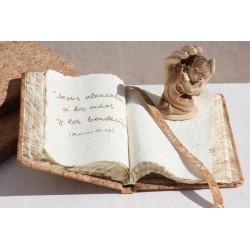 "Jesús abrazaba
a los niños
y los bendecía"
(Marcos 10.16)